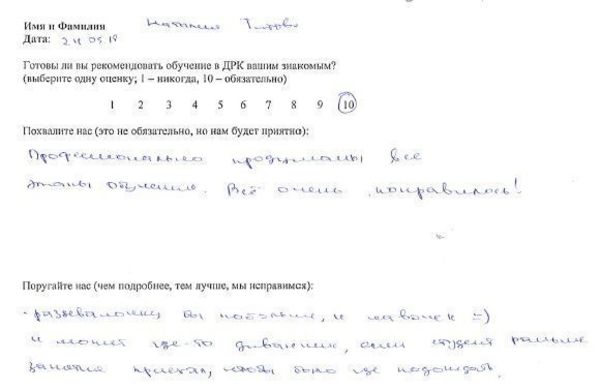 Имя и Фамилия Наталия Титова
Дата: 24.05.18
Готовы ли вы рекомендовать обучение в ДРК вашим знакомым?
(выберите одну оценку; 1 – никогда, 10 – обязательно)
1 2 3 4 5 6 7 8 9 10
Похвалите нас (это не обязательно, но нам будет приятно):
Профессионально продуманы все
этапы обучения. Всё очень понравилось!
Поругайте нас (чем подробнее, тем лучше, мы исправимся):
- раздевалочку бы побольше, и лавочек =)
и может где-то диванчик, если студент раньше
занятия приехал, чтобы было где подождать.